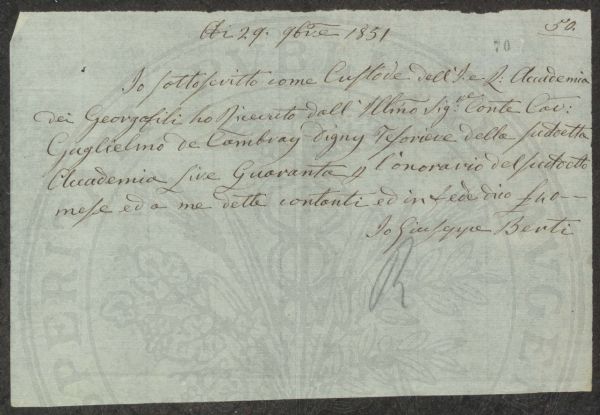 50.
Ai 29. 9bre 1851
70
Io sottoscritto come Custode dell'I. e R. Accademia
dei Georgofili ho Ricevuto dall'Illmo Sigre Conte Cav:
Guglielmo de Cambray Digny Tesoriere della sudetta
Accademia Lire Quaranta p l'onorario del sudetto
mese ed a me dette contanti ed in fede dico £40--
Io Giuseppe Berti
R